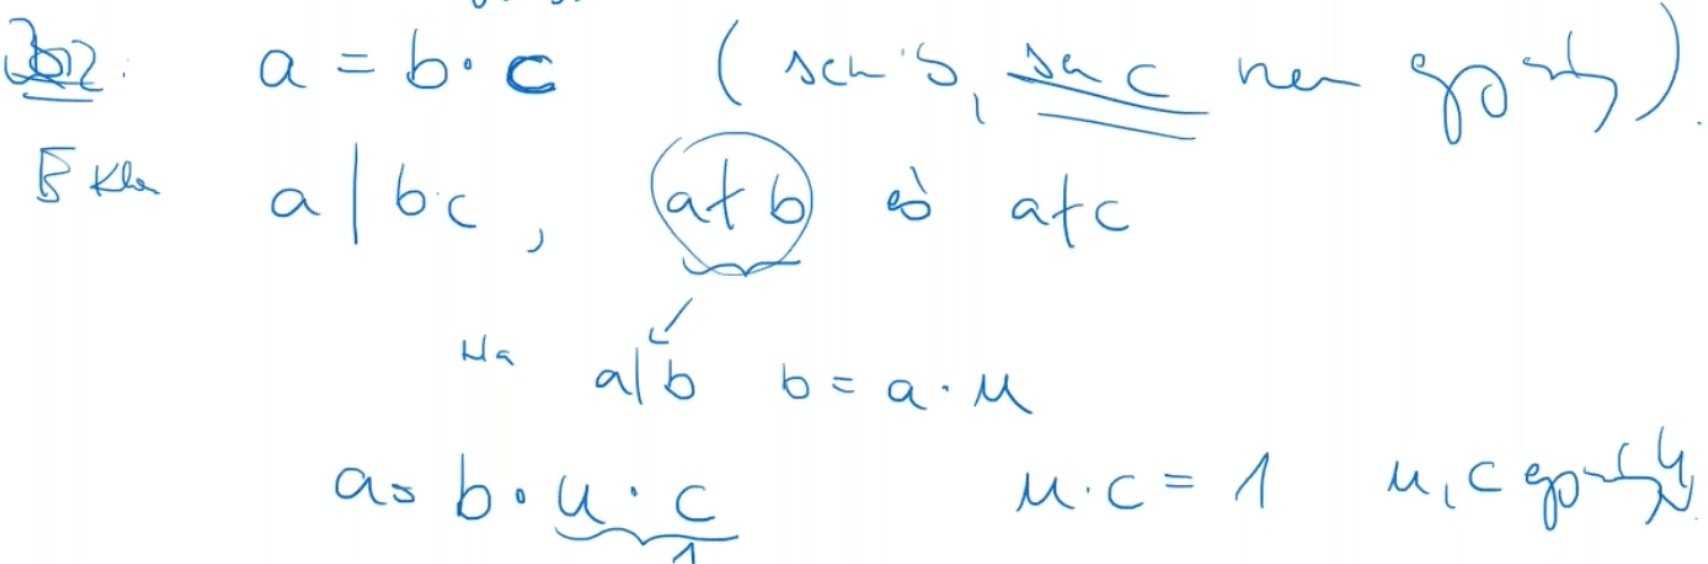 Biz: a = b · c (sem b, sem c nem egység).
Ekkor a | b·c, a ∤ b és a ∤ c
Ha a | b b = a · u
a = b · u · c u · c = 1 u, c egység ↯.
1